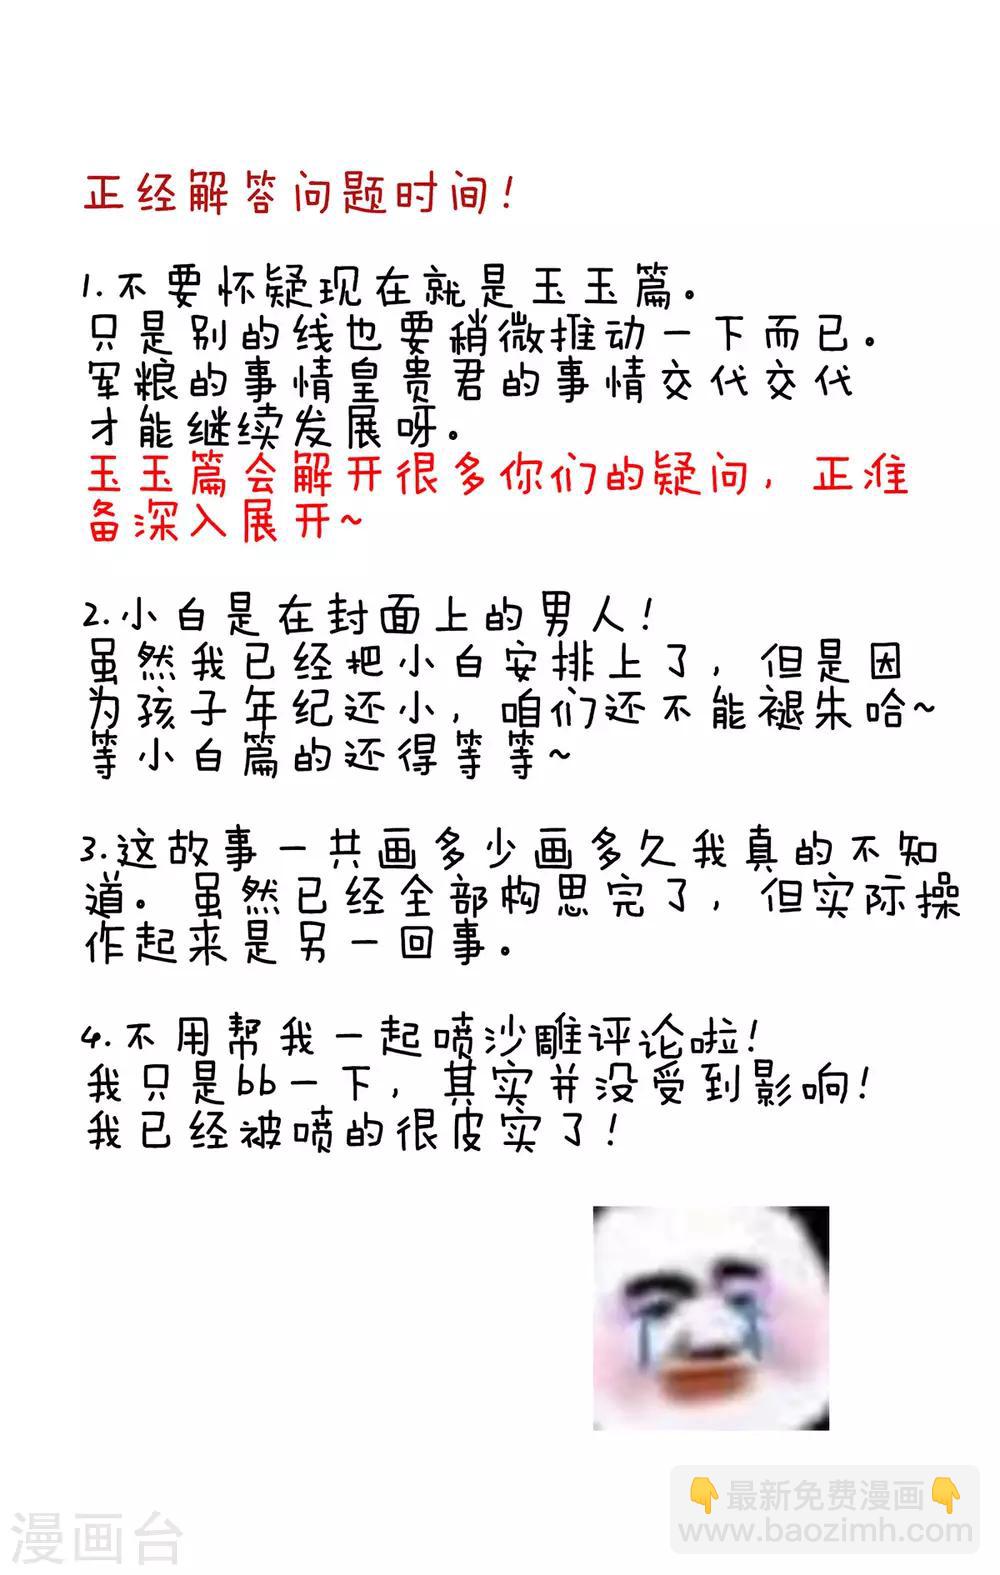 正经解答问题时间！
1.不要怀疑现在就是玉玉篇。
只是别的线也要稍微推动一下而已。
军粮的事情皇贵君的事情交代交代
才能继续发展呀。
玉玉篇会解开很多你们的疑问，正准
备深入展开~
2.小白是在封面上的男人！
虽然我已经把小白安排上了，但是因
为孩子年纪还小，咱们还不能褪朱哈~
等小白篇的还得等等~
3.这故事一共画多少画多久我真的不知
道。虽然已经全部构思完了，但实际操
作起来是另一回事。
4.不用帮我一起喷沙雕评论啦！
我只是bb一下，其实并没受到影响！
我已经被喷的很皮实了！
👇最新免费漫画👇
www.baozimh.com
漫画台